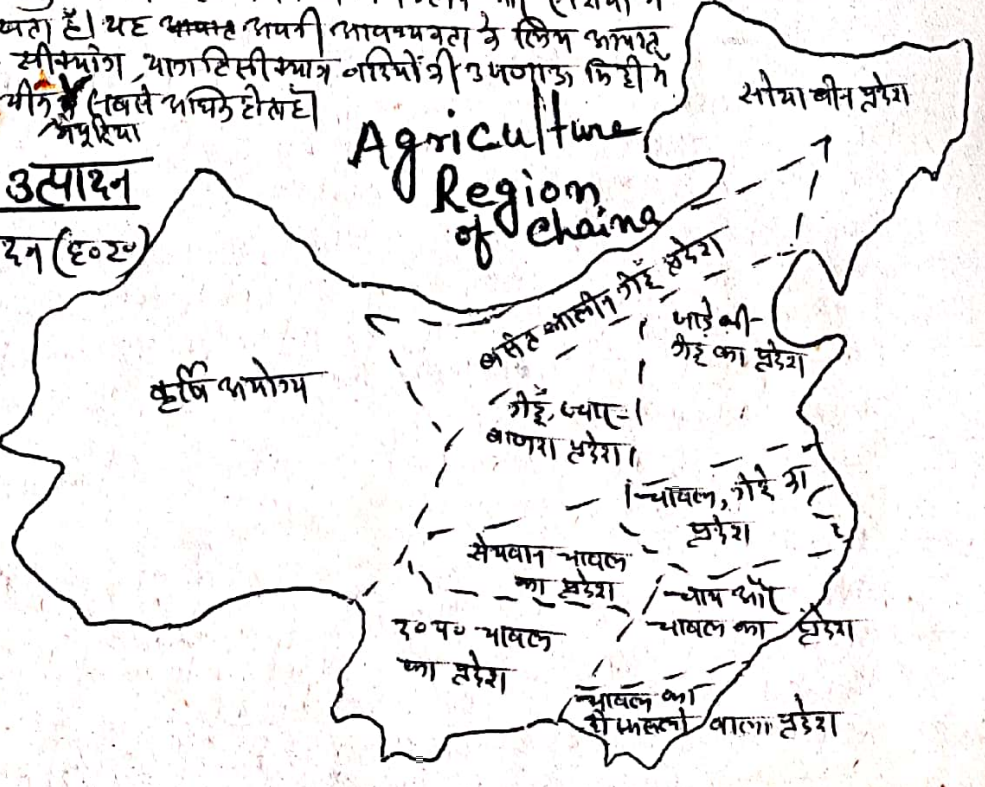 है। यह अपनी आवश्यकता के लिए आयात
सीक्यांग यांगटिसीक्यांग नदियों की उपजाऊ मिट्टी में
सबसे अधिक होता है।
मंचूरिया
उत्पादन
Agriculture
Region
of Chaina
सोयाबीन प्रदेश
बसंत कालीन गेहूँ प्रदेश
जाड़े की
गेहूं का प्रदेश
कृर्षि अयोग्य
गेहूँ, ज्वार-
बाजरा प्रदेश
चावल, गेहूं का
प्रदेश
सेचवान चावल
का प्रदेश
चाय और
चावल का प्रदेश
द०प० चावल
का प्रदेश
चावल का
दो फसलो वाला प्रदेश